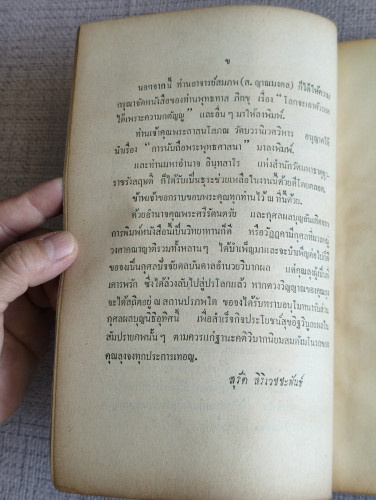 ข
นอกจากนี้ ท่านอาจารย์สมภพ (ส. ญาณมงคล) ก็ได้ให้ความ
กรุณาจัดหนังสือของท่านพุทธทาส ภิกขุ เรื่อง "โลกจะเอาตัวรอด
ได้เพราะความกตัญญู" และอื่น ๆ มาให้ลงพิมพ์.
ท่านเจ้าคุณพระสาสนโสภณ วัดบวรนิเวศวิหาร อนุญาตให้
นำเรื่อง "การนับถือพระพุทธศาสนา" มาลงพิมพ์.
และท่านมหาอำนาจ สินฺทสาโร แห่งสำนักวัดมหาธาตุฯ
ราชรังสฤษดิ์ ก็ได้รับเป็นธุระช่วยเหลือในงานนี้ด้วยดีโดยตลอด.
ข้าพเจ้าขอกราบขอบพระคุณทุกท่านไว้ ณ ที่นี้ด้วย.
ด้วยอำนาจคุณพระศรีรัตนตรัย และกุศลผลบุญอันเกิดจาก
การพิมพ์หนังสือนี้ขึ้นเป็นวิทยาทานก็ดี หรือวัฏฏคามินีกุศลที่มวลหมู่
วงศาคณาญาติรวมทั้งหลาน ๆ ได้บำเพ็ญมาและจะบำเพ็ญต่อไปก็ดี
ขอจงเป็นกุศลปัจจัยดลบันดาลอำนวยวิบากผล แด่คุณลุงผู้เป็นที่
เคารพรัก ซึ่งได้ล่วงลับไปสู่ปรโลกแล้ว หากดวงวิญญาณของคุณลุง
จะได้สถิตอยู่ ณ สถานปรภพใด ขอจงได้รับทราบอนุโมทนาในส่วน
กุศลผลบุญนิธิอุทิศนี้ เพื่อสำเร็จกิจประโยชน์สุขอิฐวิบูลผลใน
สัมปรายภพนั้น ๆ ตามควรแก่ฐานะคติวิบากนิยมสมดังมโนรถของ
คุณลุงจงทุกประการเทอญ.
สุรัต สิริเวชชะพันธ์